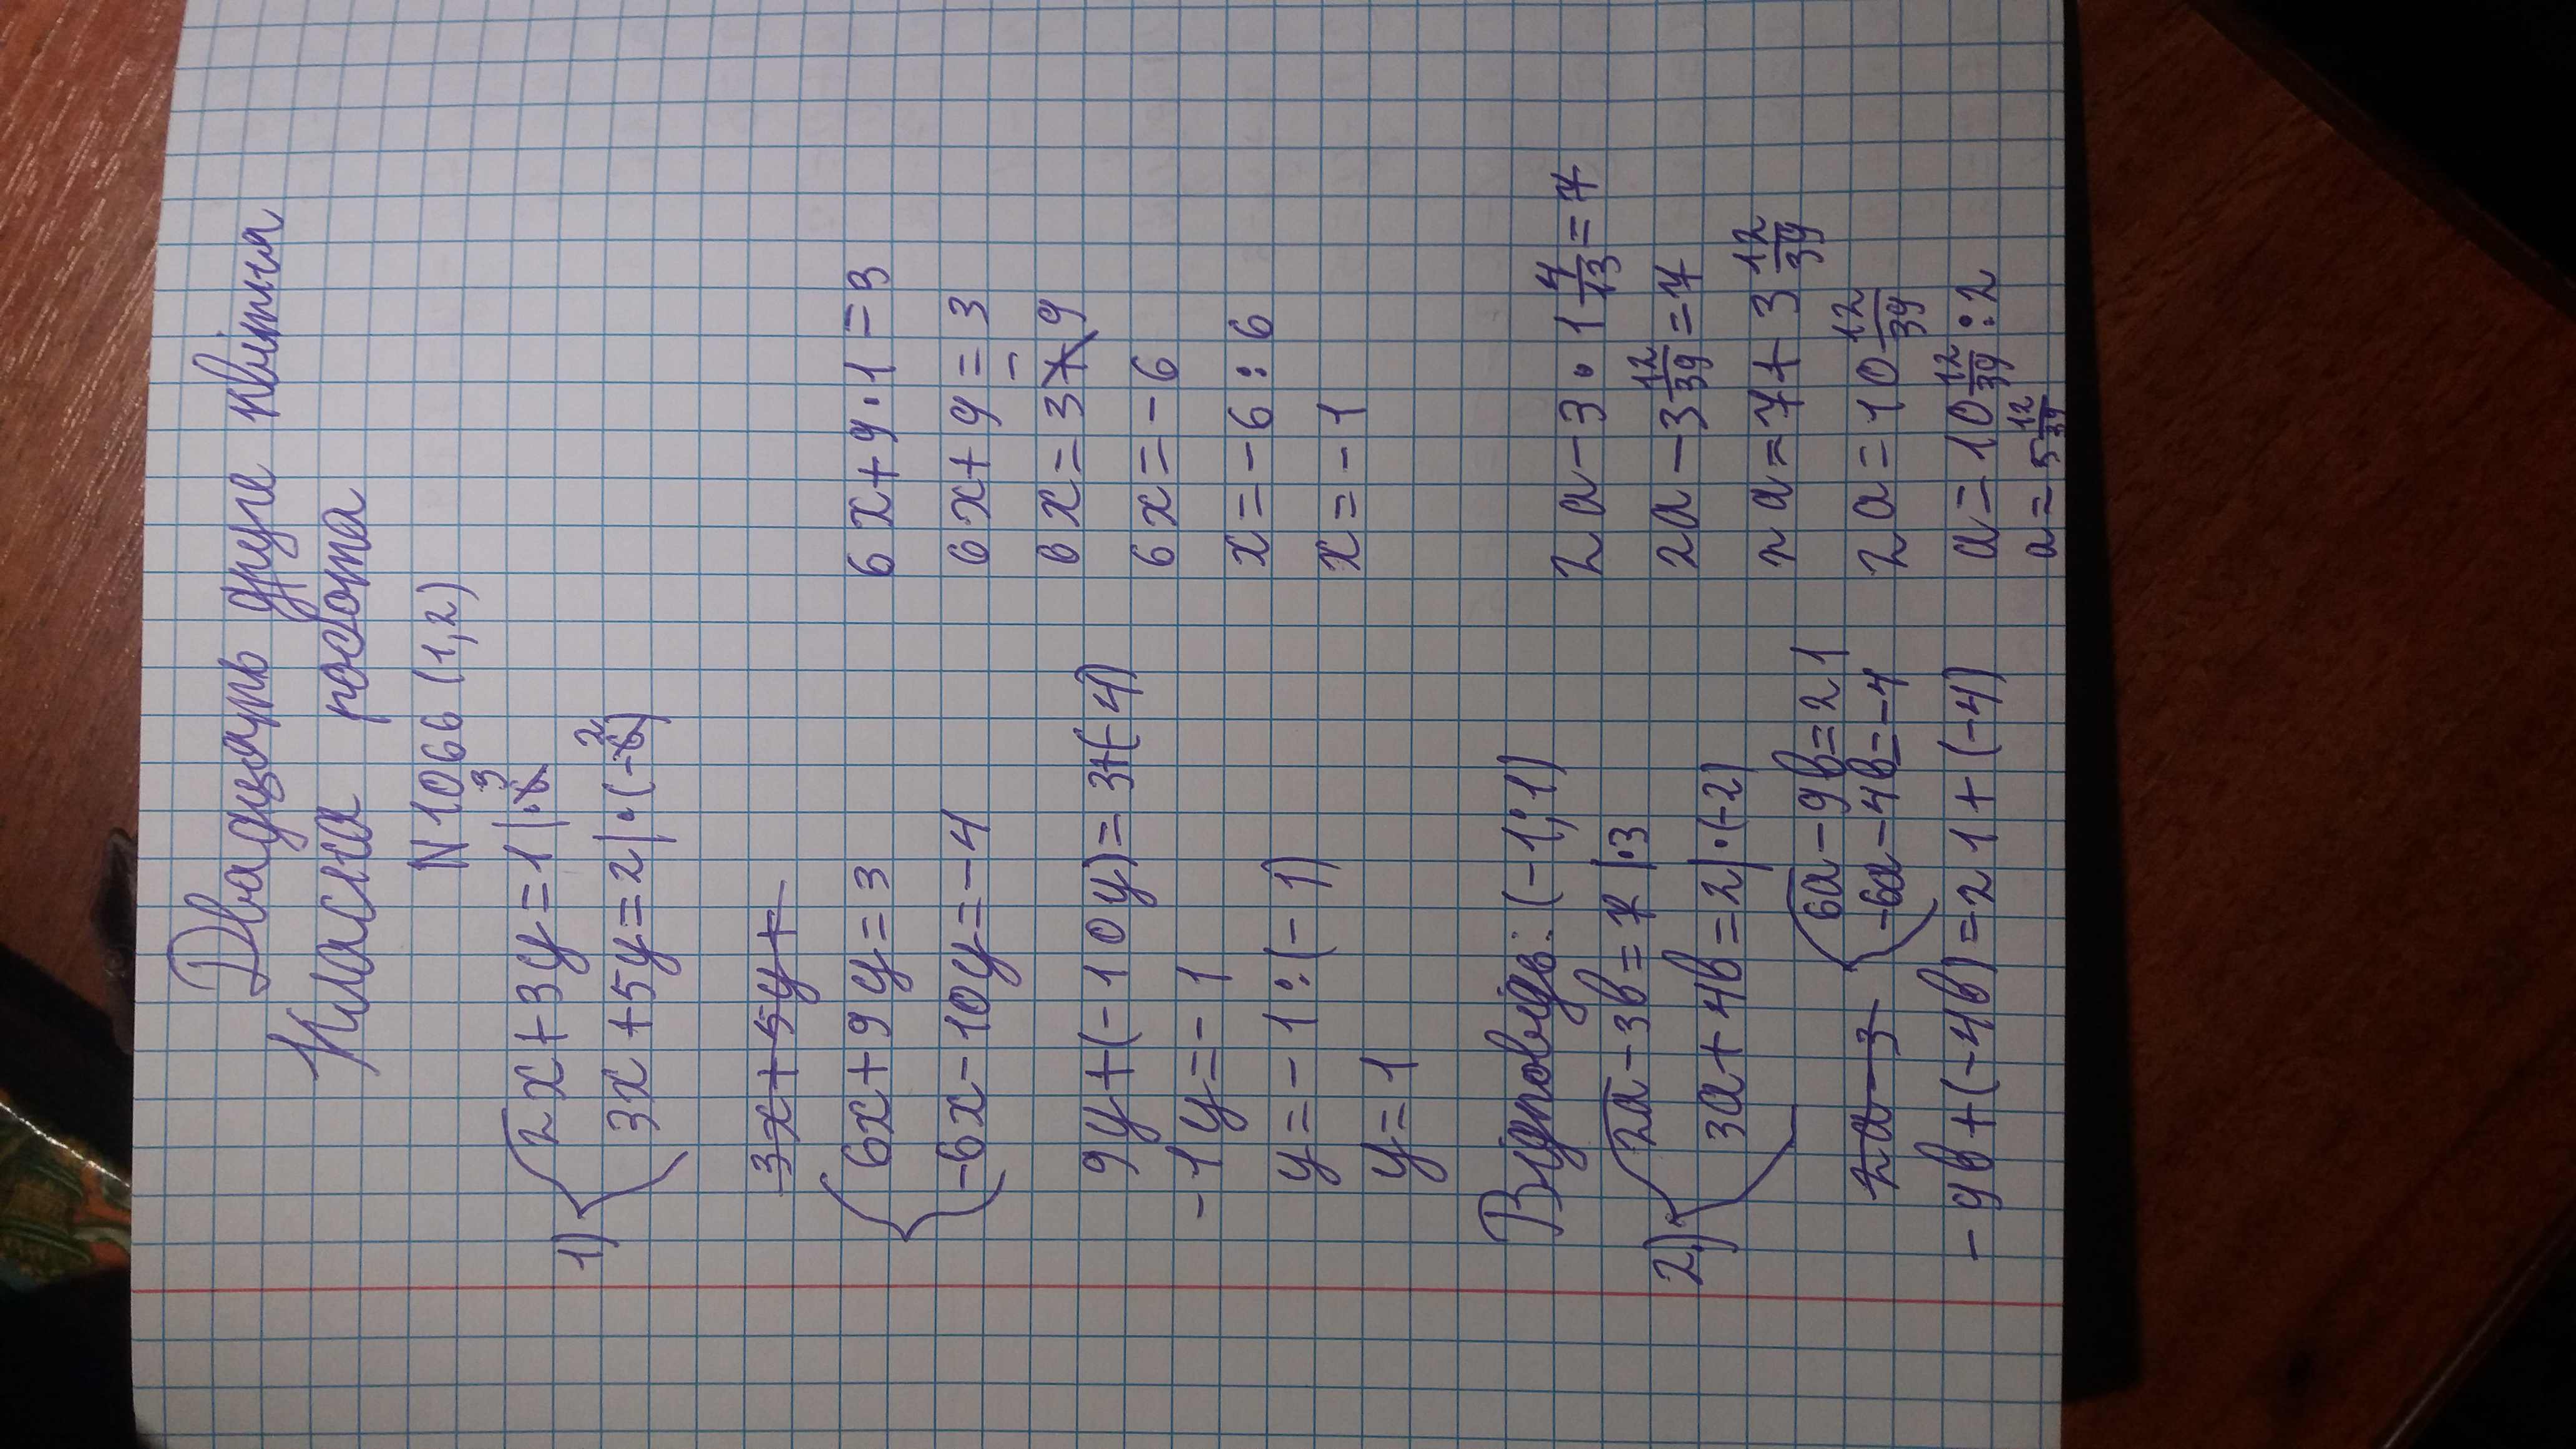 Двадцять друге квітня
Класна робота
N 1066 (1,2)
1) { 2x+3y=1 | · 3
3x+5y=2 | · (-2)
3x+5y+
{ 6x+9y=3
-6x-10y=-4
9y+(-10y)=3+(-4)
-1y=-1
y=-1:(-1)
y=1
6x+9·1=3
6x+9=3
6x=3-9
6x=-6
x=-6:6
x=-1
Відповідь: (-1;1)
2) { 2a-3b=7 | · 3
3a+4b=2 | · (-2)
2a-3
{ 6a-9b=21
-6a-4b=-4
-9b+(-4b)=21+(-4)
2a-3·1 4/13=7
2a-3 12/39=7
2a=7+3 12/39
2a=10 12/39
a=10 12/39:2
a=5 12/39